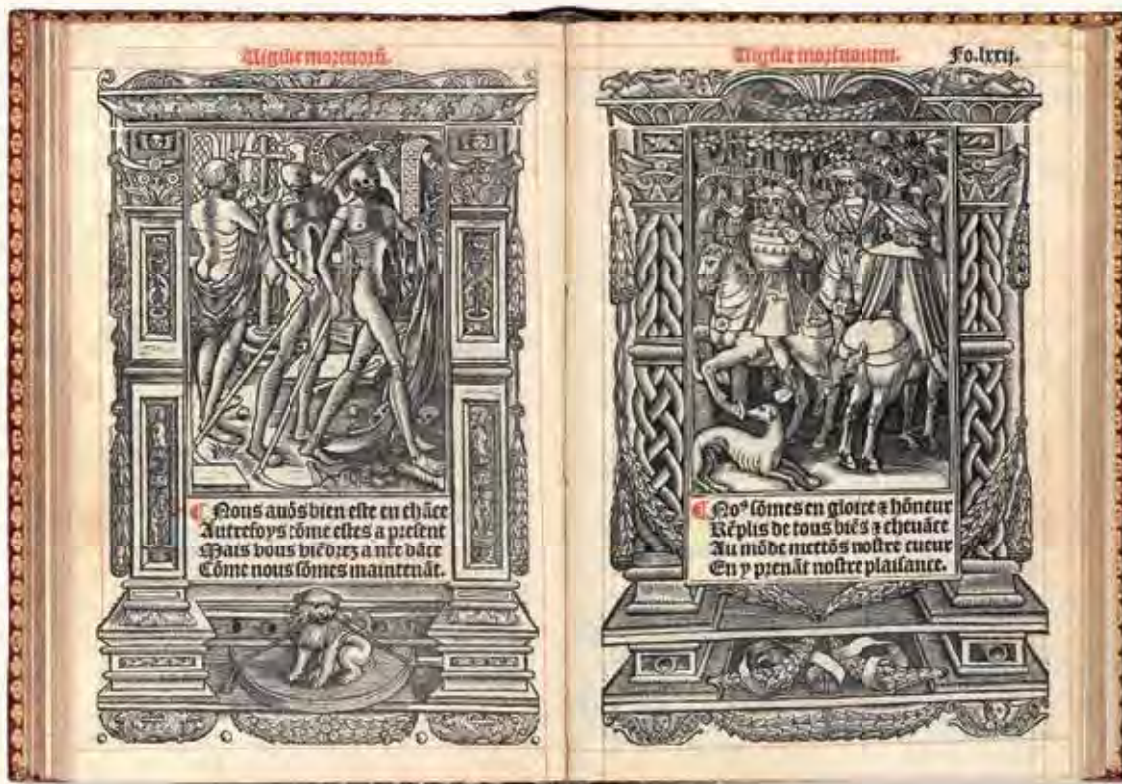 Vigilie mortuorũ.
Nous auõs bien este en chãce
Autrefoys cõme estes a present
Mais vous viẽdrez a nr̃e dãce
Cõme nous sõmes maintenãt.
Vigilie mortuorum. Fo.lxxij.
Noꝰ sõmes en gloire ⁊ hõneur
Rẽplis de tous biẽs ⁊ cheuãce
Au mõde mettõs nostre cueur
En y prenãt nostre plaisance.